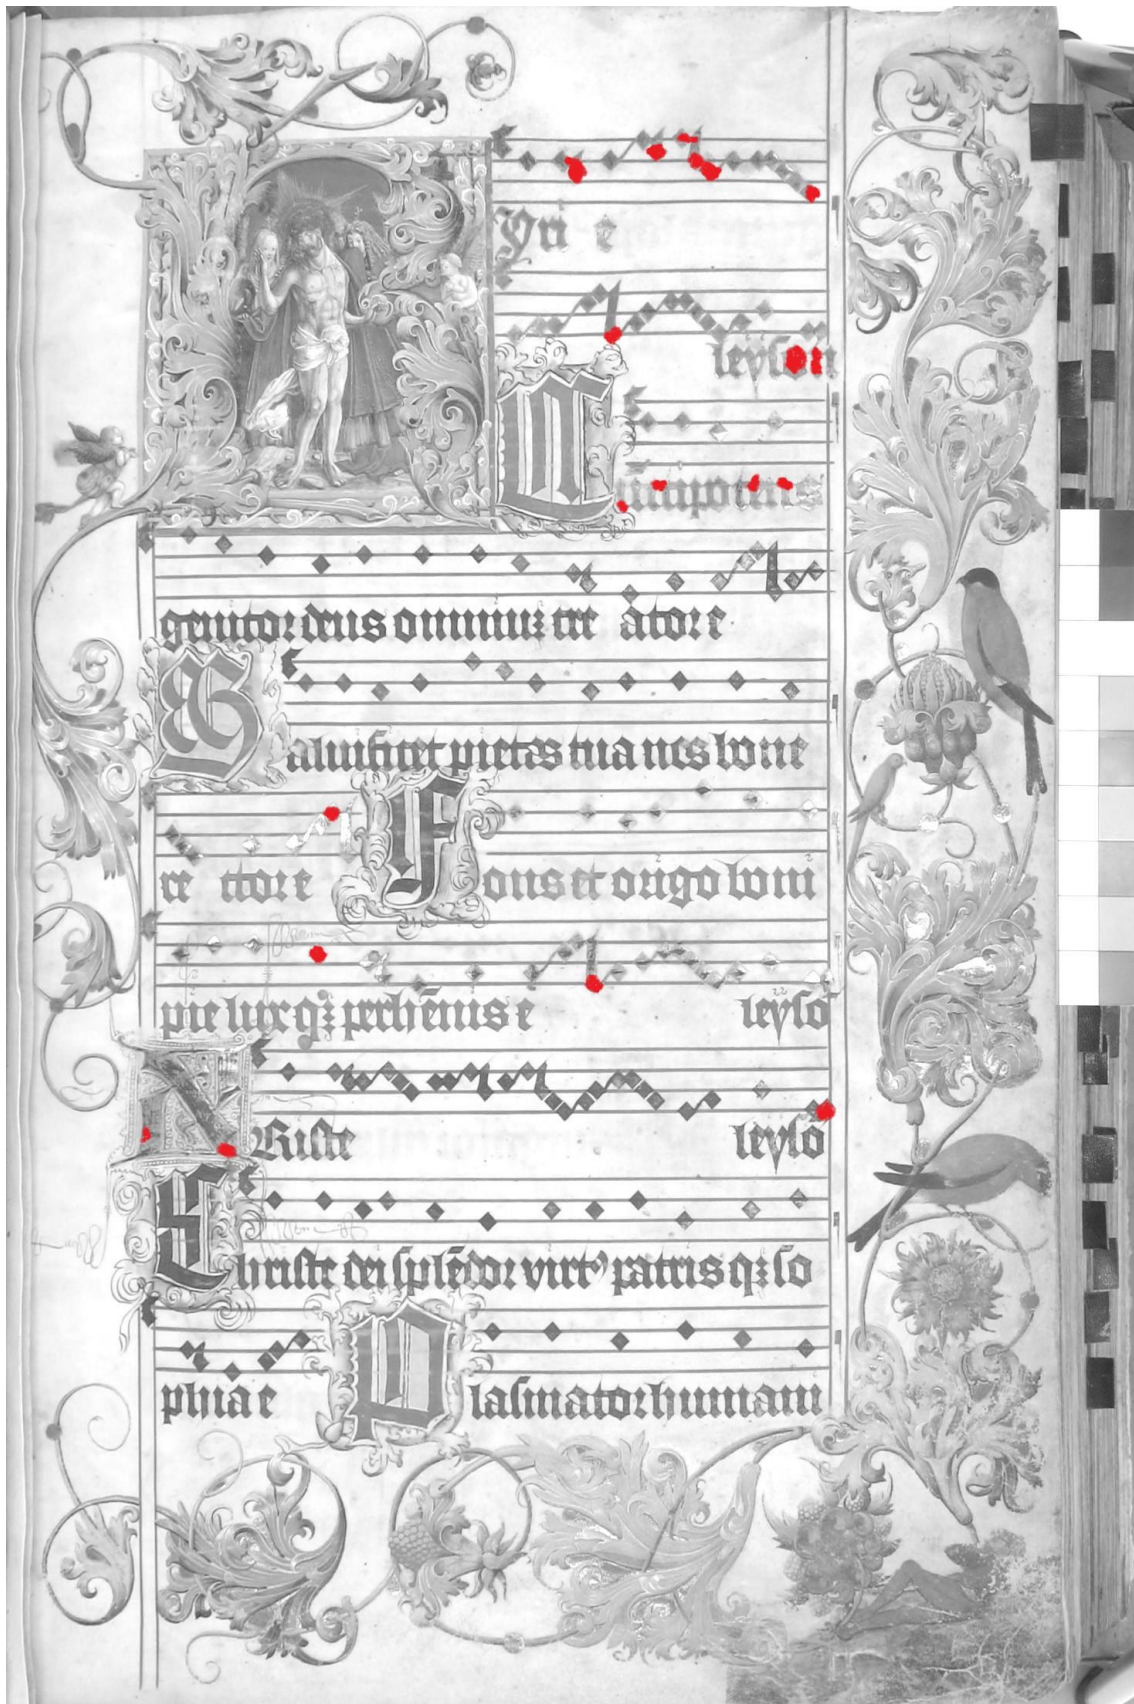 yri e
leyson
Cunctipotens
genitor deus omniuz cre ator e
Salvificet pietas tua nos bone
re ctor e Fons et origo boni
pie lux qz perhēnis e leyso
Xpriste leysō
Christe dei splēdor virtꝰ patris qz so
phia e Plasmator humani